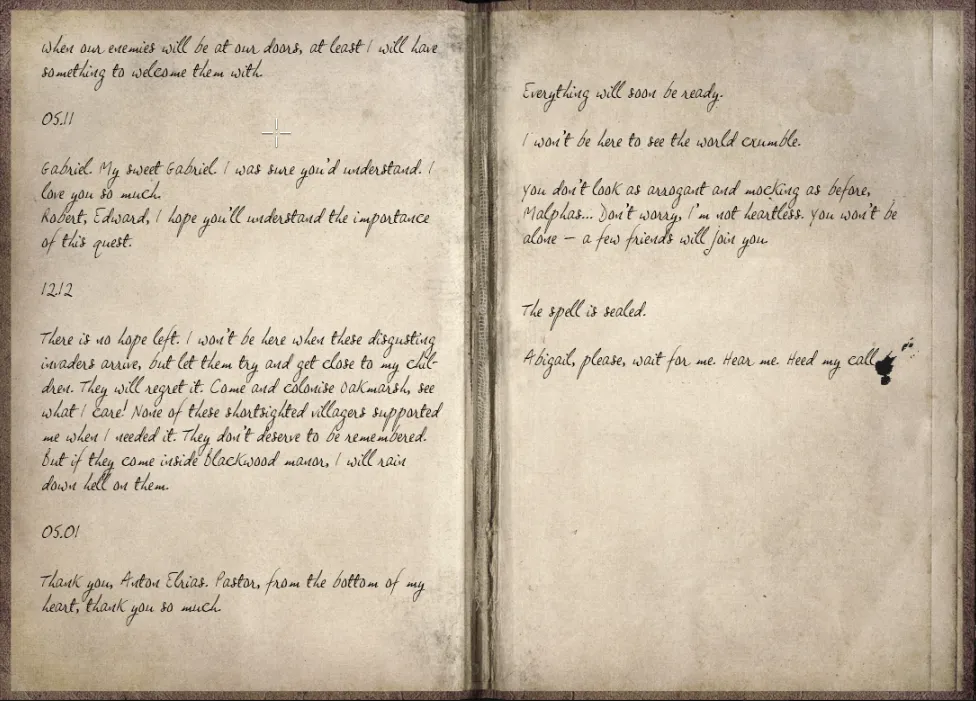 when our enemies will be at our doors, at least I will have
something to welcome them with.
05.11
Gabriel. My sweet Gabriel. I was sure you'd understand. I
love you so much.
Robert, Edward, I hope you'll understand the importance
of this quest.
12.12
There is no hope left. I won't be here when these disgusting
invaders arrive, but let them try and get close to my chil-
dren. They will regret it. Come and colonise Oakmarsh, see
what I care! None of these shortsighted villagers supported
me when I needed it. They don't deserve to be remembered.
But if they come inside Blackwood manor, I will rain
down hell on them.
05.01
Thank you, Anton Elrias. Pastor, from the bottom of my
heart, thank you so much.
Everything will soon be ready.
I won't be here to see the world crumble.
You don't look as arrogant and mocking as before,
Malphas... Don't worry, I'm not heartless. You won't be
alone – a few friends will join you.
The spell is sealed.
Abigail, please, wait for me. Hear me. Heed my call